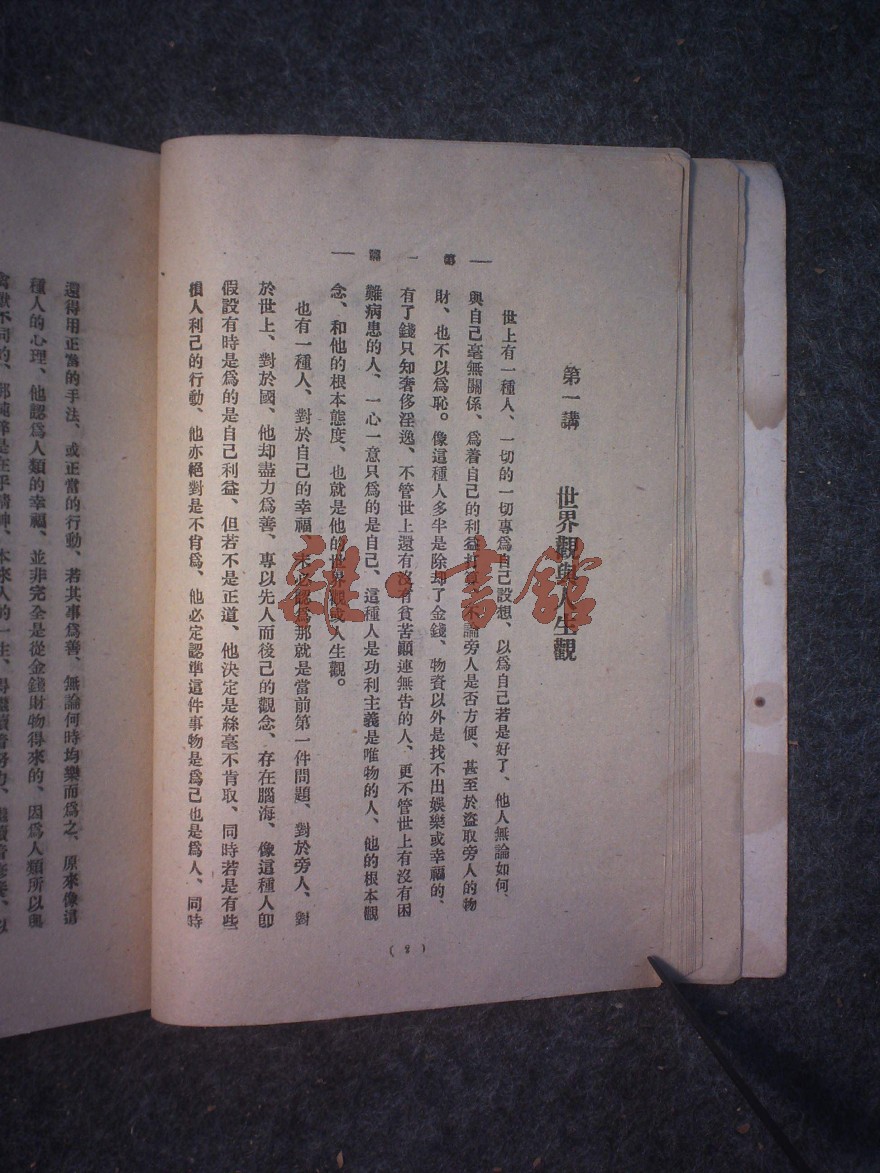 第一講
第一講 世界觀與人生觀
世上有一種人、一切的一切專為自己設想、以為自己若是好了、他人無論如何、
與自己毫無關係、為着自己的利益打算、不論旁人是否方便、甚至於盜取旁人的物
財、也不以為恥。像這種人多半是除却了金錢、物資以外是找不出娛樂或幸福的、
有了錢只知奢侈淫逸、不管世上還有沒有貧苦顚連無告的人、更不管世上有沒有困
難病患的人、一心一意只為的是自己、這種人是功利主義是唯物的人、他的根本觀
念、和他的根本態度、也就是他的世界觀或人生觀。
也有一種人、對於自己的幸福、未必認為那就是當前第一件問題、對於旁人、對
於世上、對於國、他却盡力為善、專以先人而後己的觀念、存在腦海、像這種人卽
假設有時是為的是自己利益、但若不是正道、他決定是絲毫不肯取、同時若是有些
損人利己的行動、他亦絕對是不肯為、他必定認準這件事物是為己也是為人、同時
(2)
還得用正當的手法、或正當的行動、若其事為善、無論何時均樂而為之、原來像這
種人的心理、他認為人類的幸福、並非完全是從金錢財物得來的、因為人類所以與
禽獸不同的、那純粹是在乎精神、本來人的一生、
雜·書館